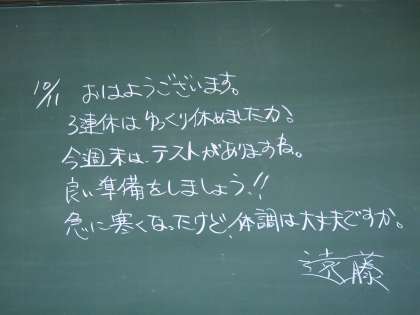 10/11 おはようございます。
3連休はゆっくり休めましたか?
今週末は、テストがありますね。
良い準備をしましょう!!
急に寒くなったけど、体調は大丈夫ですか。
遠藤